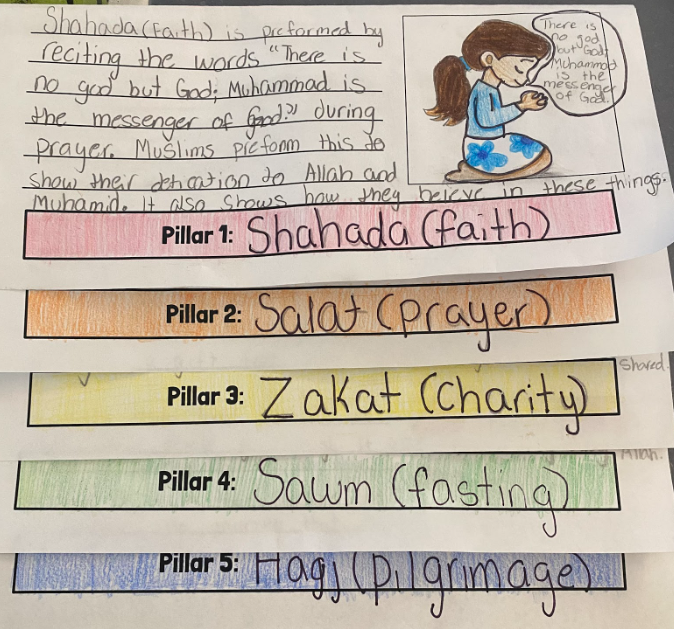 Shahada (faith) is preformed by
reciting the words "There is
no god but God; Muhammad is
the messenger of God." during
prayer. Muslims preform this to
show their dedication to Allah and
Muhamid. It also shows how they believe in these things.
There is
no god
but God;
Muhammad
is the
messenger
of God.
Pillar 1: Shahada (faith)
Pillar 2: Salat (prayer)
shared.
Pillar 3: Zakat (Charity)
Allah.
Pillar 4: Sawm (fasting)
Pillar 5: Hajj (pilgrimage)